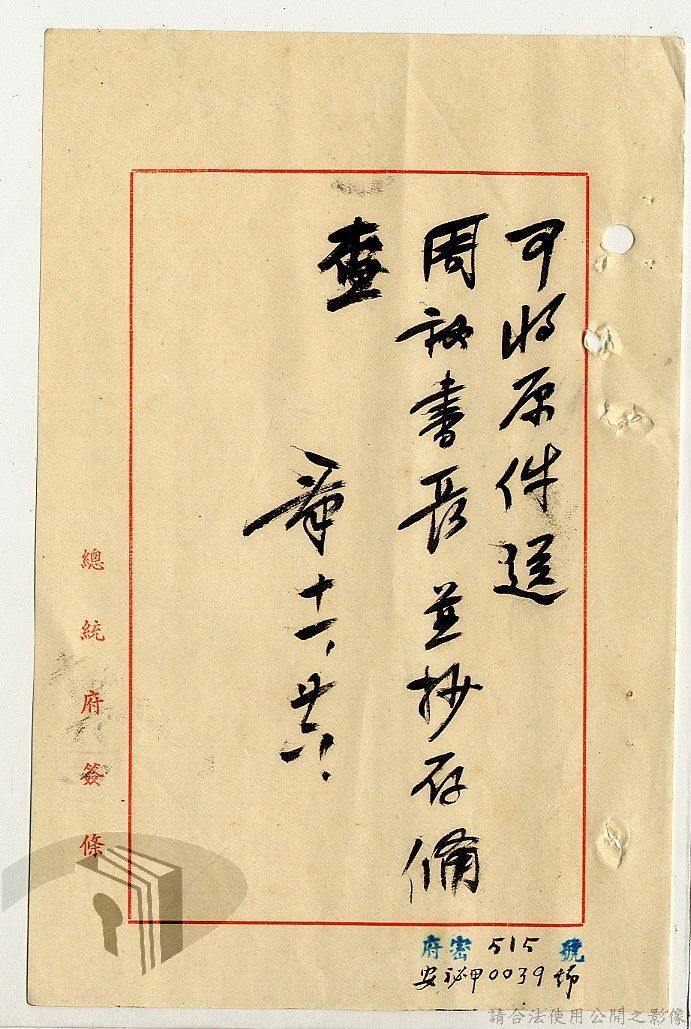 可將原件送
周秘書長並抄存備
查
章十一、廿六、
總統府簽條
府密 515 號
安秘甲0039號
請合法使用公開之影像